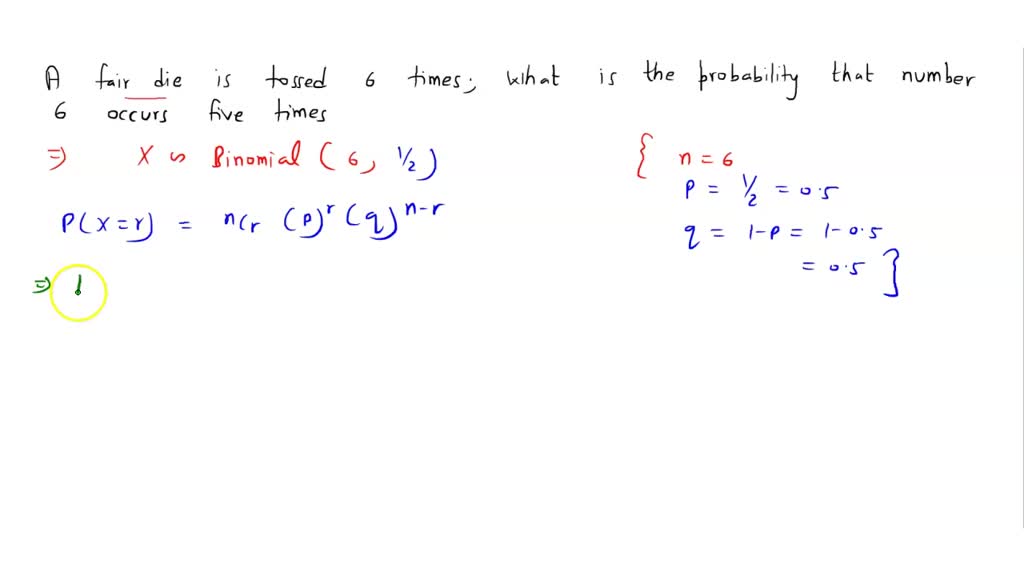 A fair die is tossed 6 times; what is the probability that number
6 occurs five times
⇒ X ∽ Binomial (6, 1/2)
P(X=r) = nCr (p)^r (q)^n-r
⇒
{ n = 6
p = 1/2 = 0.5
q = 1-p = 1-0.5
= 0.5 }